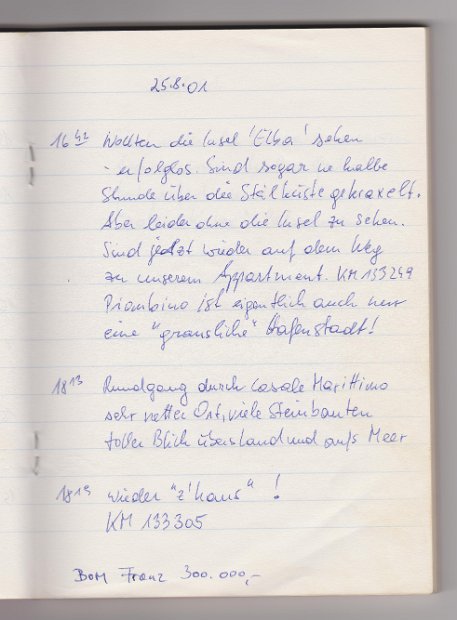 25.8.01
16 42 Wollten die Insel 'Elba' sehen
- erfolglos. Sind sogar ne halbe
Stunde über die Steilküste gekraxelt.
Aber leider ohne die Insel zu sehen.
Sind jetzt wieder auf dem Weg
zu unserem Appartment. KM 133249
Piombino ist eigentlich auch nur
eine "grausliche" Hafenstadt!
18 13 Rundgang durch Casale Marittimo
sehr netter Ort, viele Steinbauten
toller Blick übers Land und aufs Meer
18 19 wieder "z'haus" !
KM 133305
BOM Franz 300.000,-